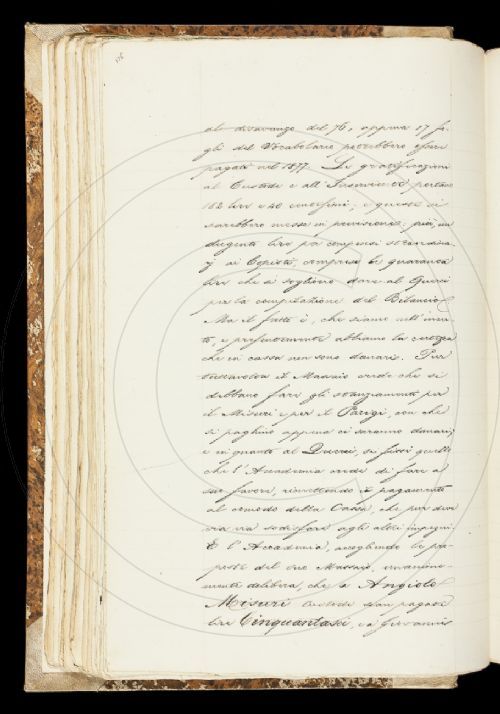 al disavanzo del 76, appena 17 fo-
gli del Vocabolario potrebbero essere
pagati nel 1877. Le gratificazioni
al Custode e all'Inserviente portano
162 lire e 40 centesimi; e queste si
sarebbero messe in previsione: più, un
dugento lire pei compensi straordina-
rj ai Copisti, comprese le quaranta
lire che si sogliono dare al
per la compilazione del Bilancio.
Ma il fatto è, che siamo nell'incer-
to, e presentemente abbiamo la certezza
che in cassa non sono danari. Pur
tuttavolta il Massaio crede che si
debbano fare gli stanziamenti per
il Misuri e per il Parigi, con che
si paghino appena ci saranno danari;
e in quanto al si fissi quello
che l'Accademia crede di fare a
suo favore, rimettendo il pagamento
al comodo della Cassa, che per
via via sodisfare agli altri impegni.
E l'Accademia, accogliendo le pro-
poste del suo Massaio, unanime-
mente delibera, che a Angiolo
Misuri Custode sian pagate
lire Cinquantasei, e a Giovanni